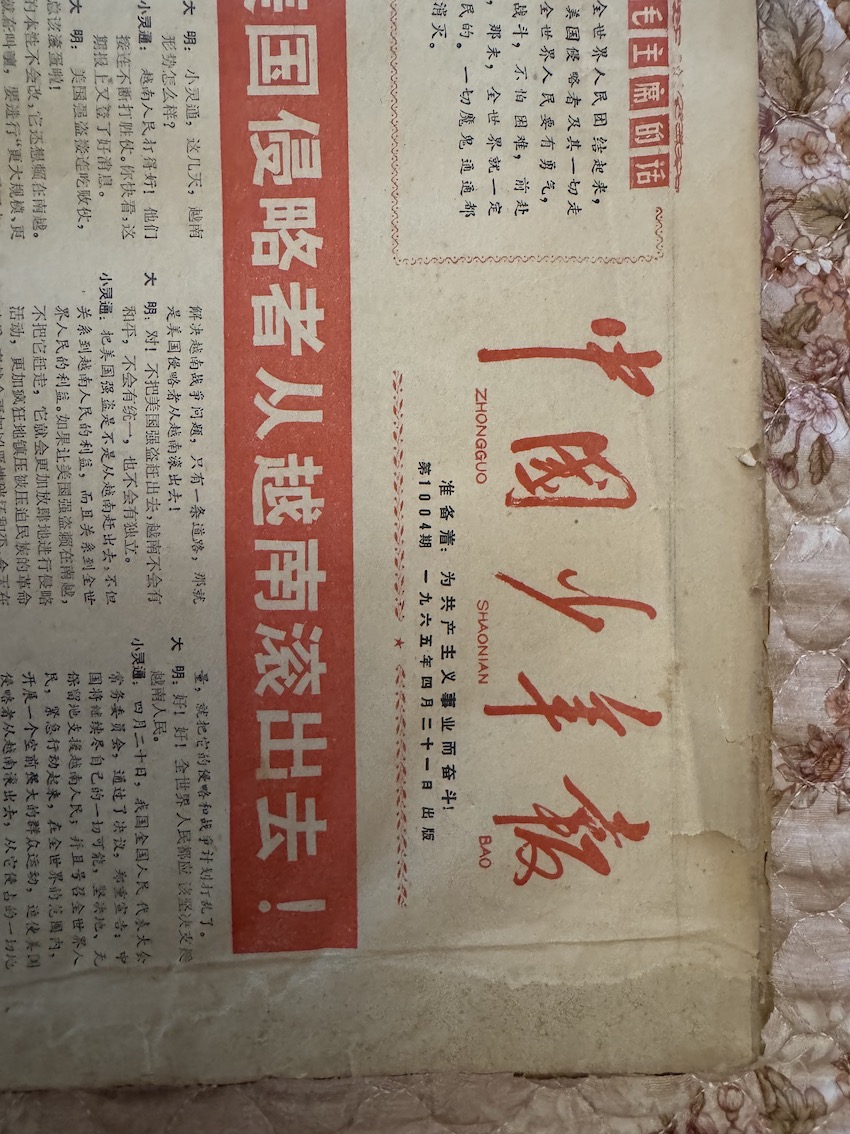 毛主席的话
全世界人民团结起来,
美国侵略者及其一切走
全世界人民要有勇气,
战斗,不怕困难,前赴
,那末,全世界就一定
民的。一切魔鬼通通都
消灭。
中國少年報
ZHONGGUO SHAONIAN BAO
准备着:为共产主义事业而奋斗!
第1004期 一九六五年四月二十一日 出版
美国侵略者从越南滚出去!
大 明:小灵通,这几天,越南
形势怎么样?
小灵通:越南人民打得好!他们
接连不断打胜仗。你快看:这
期报上又登了好消息。
大 明:美国强盗接连吃败仗,
总该滚蛋啦!
的本性不会改,它还想赖在南越。
就在叫嚷,要进行“更大规模、更
解决越南战争问题,只有一条道路,那就
是美国侵略者从越南滚出去!
大 明:对!不把美国强盗赶出去,越南不会有
和平,不会有统一,也不会有独立。
小灵通:把美国强盗是不是从越南赶出去,不但
关系到越南人民的利益,而且关系到全世
界人民的利益。如果让美国强盗赖在南越,
不把它赶走,它就会更加放肆地进行侵略
活动,更加疯狂地镇压被压迫民族的革命
量,就把它的侵略和战争计划打乱了。
大 明:好!好!全世界人民都应该坚决支援
越南人民。
小灵通:四月二十日,我国全国人民代表大会
常务委员会,通过了决议,郑重宣告:中
国将继续尽自己的一切可能,坚决地、无
保留地支援越南人民;并且号召全世界人
民,紧急行动起来,在全世界的范围内,
开展一个空前强大的群众运动,迫使美国
侵略者从越南滚出去,从它侵占的一切地